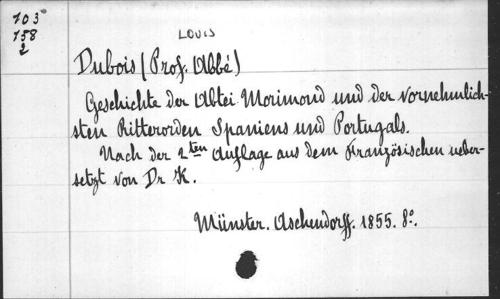 103
158
2
LOUIS
Dubois (Prof. Abbé)
Geschichte der Abtei Morimond und der vornehmlich-
sten Ritterorden Spaniens und Portugals.
Nach der 2ten Auflage aus dem Französischen ueber-
setzt von Dr K.
Münster. Aschendorff. 1855. 8°.